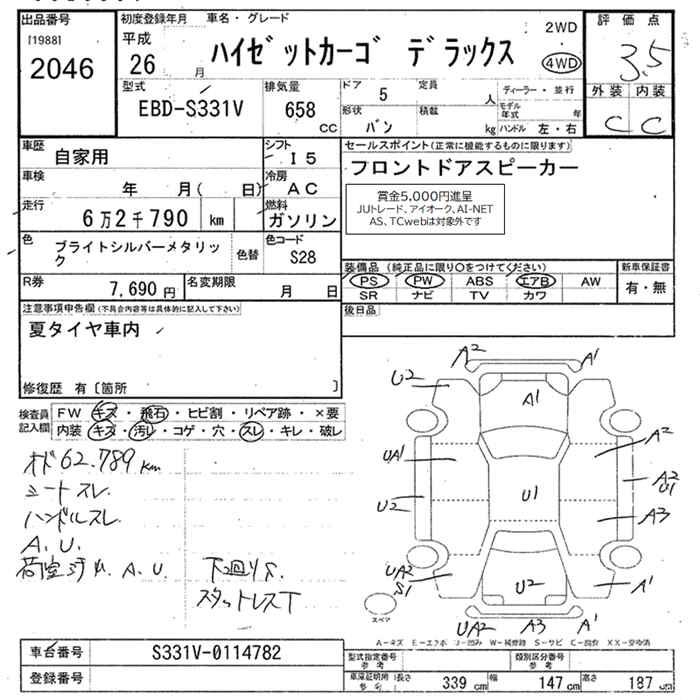 出品番号
[1988]
2046
初度登録年月
平成
26 月
車名・グレード
ハイゼットカーゴ デラックス
2WD
4WD
評価点
3.5
外装 内装
C C
型式
EBD-S331V
排気量
658
CC
ドア
5
定員
人
形状
バン
積載
kg
ディーラー・並行
モデル年式
年
ハンドル 左・右
車歴
自家用
シフト
I5
車検
年 月( 日)
冷房
AC
走行
6万2千790 km
燃料
ガソリン
色
ブライトシルバーメタリック
色替
色コード
S28
R券
7,690円
名変期限
月 日
セールスポイント(正常に機能するものに限ります)
フロントドアスピーカー
賞金5,000円進呈
JUトレード、アイオーク、AI-NET
AS、TCwebは対象外です
装備品 (純正品に限り○をつけてください)
PS PW ABS エアB AW
SR ナビ TV カワ
新車保証書
有・無
後日品
注意事項申告欄(不具合内容等は具体的に記入して下さい)
夏タイヤ車内
修復歴 有〔箇所 〕
検査員
記入欄
FW キズ・飛石・ヒビ割・リペア跡・×要
内装 キズ・汚レ・コゲ・穴・スレ・キレ・破レ
オド62.789km
シートスレ
ハンドルスレ
A.U.
荷室汚れ.A.U.
下廻りS.
スタットレスT
A2
A1
U2
A1
UA1
A2
U2
U1
A2
U1
A3
UA2
S1
U2
A1
UA2
A3
A1
スペア
A-キズ E-エクボ U-凹み W-補修跡 S-サビ C-腐食 XX-交換済
車台番号
S331V-0114782
登録番号
型式指定番号
参考
類別区分番号
参考
車庫証明用
参考
長さ
339 cm
幅
147 cm
高さ
187 cm